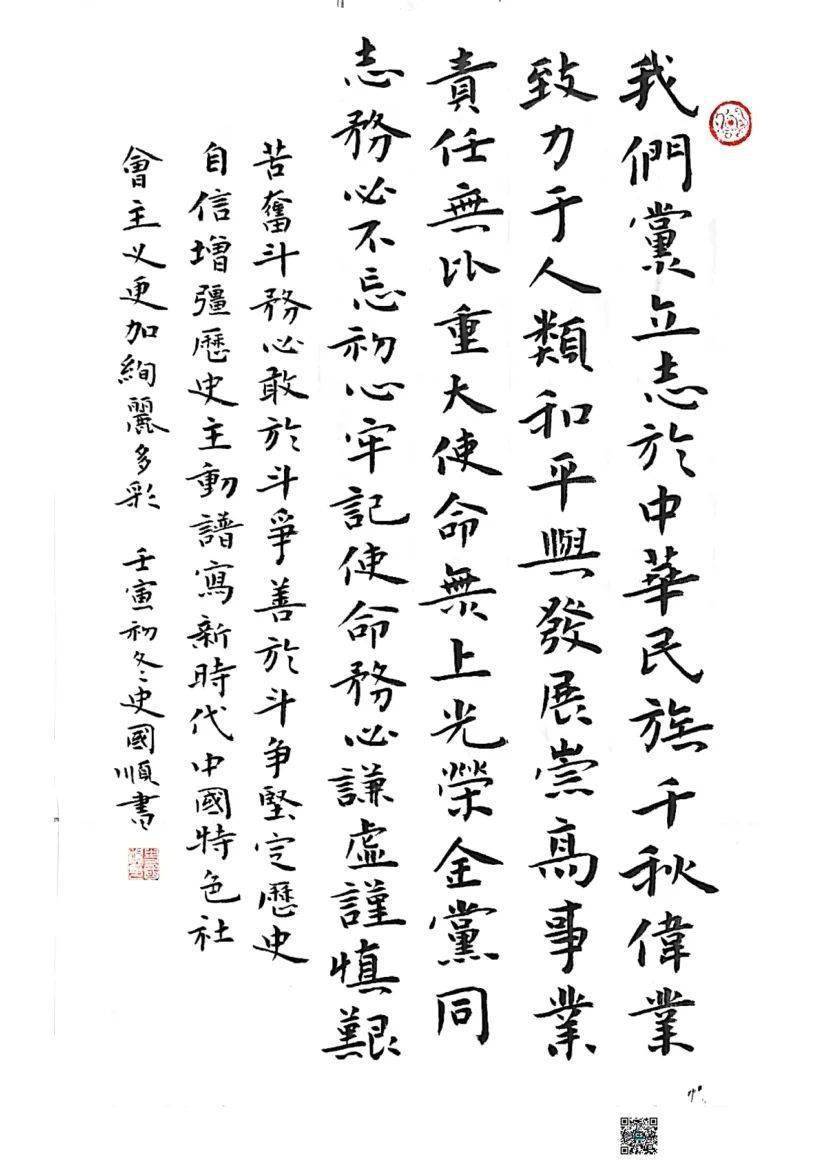 我們黨立志於中華民族千秋偉業
致力于人類和平與發展崇高事業
責任無比重大使命無上光榮全黨同
志務必不忘初心牢記使命務必謙虛謹慎艱
苦奮斗務必敢於斗爭善於斗争堅定歷史
自信增彊歷史主動譜寫新時代中國特色社
會主义更加絢麗多彩 壬寅初冬史國順書